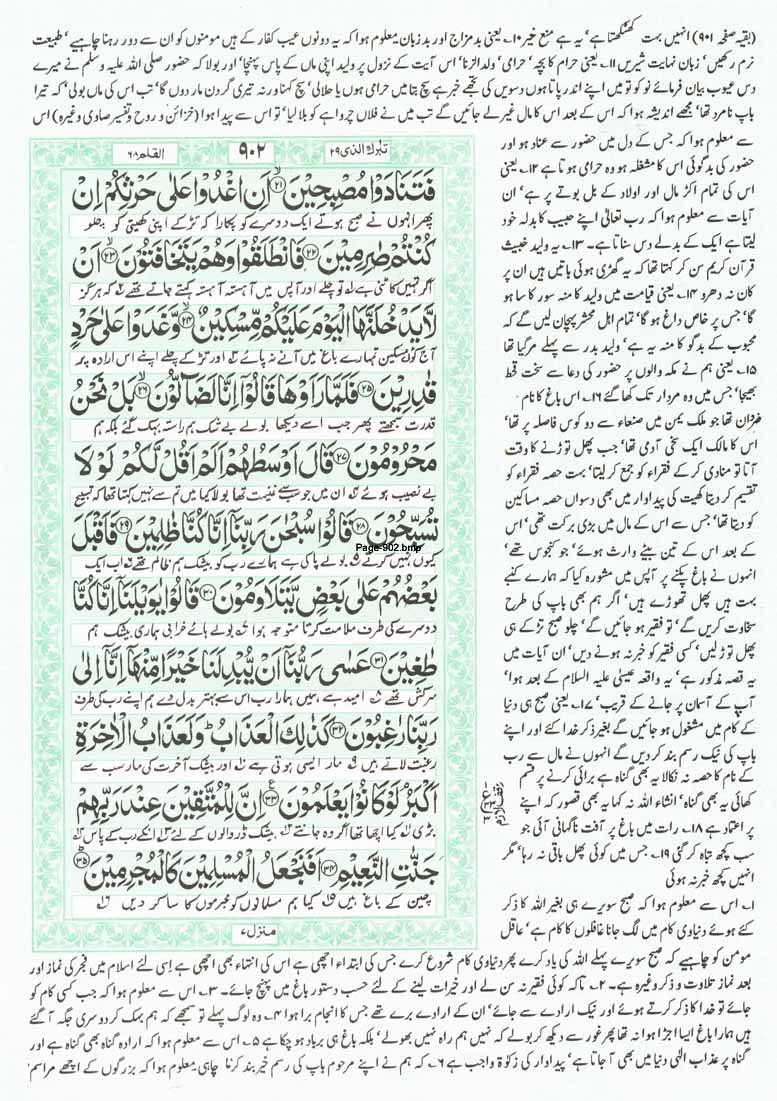 (بقیہ صفحہ ۹۰۱) انہیں بہت کھٹکتا ہے' یہ ہے منع خیر ۱۰۔ یعنی بدمزاج اور بدزبان معلوم ہوا کہ یہ دونوں عیب کفار کے ہیں مومنوں کو ان سے دور رہنا چاہیے' طبیعت
نرم رکھیں' زبان نہایت شیریں ۱۱۔ یعنی حرام کا بچہ' حرامی' ولدالزنا' اس آیت کے نزول پر ولید اپنی ماں کے پاس پہنچا' اور بولا کہ حضور صلی اللہ علیہ وسلم نے میرے
دس عیوب بیان فرمائے نو کو تو میں اپنے اندر پاتا ہوں دسویں کی تجھے خبر ہے سچ بتا میں حرامی ہوں یا حلالی' سچ کہنا ورنہ تیری گردن مار دوں گا' تب اس کی ماں بولی' کہ تیرا
باپ نامرد تھا' مجھے اندیشہ ہوا کہ اس کے بعد اس کا مال غیر لے جائیں گے تب میں نے فلاں چرواہے کو بلا لیا' تو اس سے پیدا ہوا (خزائن و روح و تفسیر صاوی وغیرہ) اس
سے معلوم ہوا کہ جس کے دل میں حضور سے عناد ہو اور
حضور کی بدگوئی اس کا مشغلہ ہو وہ حرامی ہوتا ہے ۱۲۔ یعنی
اس کی تمام اکڑ مال اور اولاد کے بل بوتے پر ہے' ان
آیات سے معلوم ہوا کہ رب تعالیٰ اپنے حبیب کا بدلہ خود
لیتا ہے ایک کے بدلے دس سناتا ہے۔ ۱۳۔ یہ ولید خبیث
قرآن کریم سن کر کہتا تھا کہ یہ گھڑی ہوئی باتیں ہیں ان پر
کان نہ دھرو ۱۴۔ یعنی قیامت میں ولید کا منہ سور کا سا ہو
گا' جس پر خاص داغ ہو گا' تمام اہل محشر پہچان لیں گے کہ
محبوب کے بدگو کا منہ یہ ہے' ولید بدر سے پہلے مر گیا تھا
۱۵۔ یعنی ہم نے مکہ والوں پر حضور کی دعا سے سخت قحط
بھیجا' جس میں وہ مردار تک کھا گئے ۱۶۔ اس باغ کا نام
تھا جو ملک یمن میں صنعاء سے دو کوس فاصلہ پر تھا'
اس کا مالک ایک سخی آدمی تھا' جب پھل توڑنے کا وقت
آتا تو منادی کر کے فقراء کو جمع کر لیتا' بہت حصہ فقراء کو
تقسیم کر دیتا کھیت کی پیداوار میں بھی دسواں حصہ مساکین
کو دیتا تھا' جس سے اس کے مال میں بڑی برکت تھی' اس
کے بعد اس کے تین بیٹے وارث ہوئے' جو کنجوس تھے'
انہوں نے باغ پکنے پر آپس میں مشورہ کیا کہ ہمارے کنبے
بہت ہیں پھل تھوڑے ہیں' اگر ہم بھی باپ کی طرح
سخاوت کریں گے' تو فقیر ہو جائیں گے' چلو صبح تڑکے ہی
پھل توڑ لیں' کسی فقیر کو خبر نہ ہونے دیں' ان آیات میں
یہ قصہ مذکور ہے' یہ واقعہ عیسیٰ علیہ السلام کے بعد ہوا'
آپ کے آسمان پر جانے کے قریب' ۱۷۔ یعنی صبح ہی دنیا
کے کام میں مشغول ہو جائیں گے بغیر ذکر خدا کئے اور اپنے
باپ کی نیک رسم بند کر دیں گے انہوں نے مال سے رب
کے نام کا حصہ نہ نکالا یہ بھی گناہ ہے برائی کرنے پر قسم
کھائی یہ بھی گناہ' انشاء اللہ نہ کہا یہ بھی قصور کہ اپنے
پر اعتماد ہے ۱۸۔ رات میں باغ پر آفت ناگہانی آئی جو
سب کچھ تباہ کر گئی ۱۹۔ جس میں کوئی پھل باقی نہ رہا' مگر
انہیں کچھ خبر نہ ہوئی
۱۔ اس سے معلوم ہوا کہ صبح سویرے ہی بغیر اللہ کا ذکر
کئے ہوئے دنیاوی کام میں لگ جانا غافلوں کا کام ہے' عاقل
تبٰرك الذی ۲۹
۹۰۲
القلم ۶۸
فَتَنَادَوْا مُصْبِحِيْنَ ۲۱ اَنِ اغْدُوْا عَلٰى حَرْثِكُمْ اِنْ
پھر انہوں نے صبح ہوتے ایک دوسرے کو پکارا کہ تڑکے اپنی کھیتی کو چلو
كُنْتُمْ صٰرِمِيْنَ ۲۲ فَانْطَلَقُوْا وَهُمْ يَتَخَافَتُوْنَ ۲۳ اَنْ
اگر تمہیں کاٹنی ہے تو چلے اور آپس میں آہستہ آہستہ کہتے جاتے تھے کہ ہرگز
لَّا يَدْخُلَنَّهَا الْيَوْمَ عَلَيْكُمْ مِّسْكِيْنٌ ۲۴ وَّغَدَوْا عَلٰى حَرْدٍ
آج کوئی مسکین تمہارے باغ میں آنے نہ پائے اور تڑکے چلے اپنے اس ارادہ پر
قٰدِرِيْنَ ۲۵ فَلَمَّا رَاَوْهَا قَالُوْٓا اِنَّا لَضَآلُّوْنَ ۲۶ بَلْ نَحْنُ
قدرت سمجھتے پھر جب اسے دیکھا بولے بے شک ہم راستہ بہک گئے بلکہ ہم
مَحْرُوْمُوْنَ ۲۷ قَالَ اَوْسَطُهُمْ اَلَمْ اَقُلْ لَّكُمْ لَوْ لَا
بے نصیب ہوئے ان میں جو سب سے غنیمت تھا بولا کیا میں تم سے نہیں کہتا تھا کہ تسبیح
تُسَبِّحُوْنَ ۲۸ قَالُوْا سُبْحٰنَ رَبِّنَآ اِنَّا كُنَّا ظٰلِمِيْنَ ۲۹ فَاَقْبَلَ
Page-902.bmp
کیوں نہیں کرتے بولے پاکی ہے ہمارے رب کو بیشک ہم ظالم تھے اب ایک
بَعْضُهُمْ عَلٰى بَعْضٍ يَّتَلَاوَمُوْنَ ۳۰ قَالُوْا يٰوَيْلَنَآ اِنَّا كُنَّا
دوسرے کی طرف ملامت کرتا متوجہ ہوا بولے ہائے خرابی ہماری بیشک ہم
طٰغِيْنَ ۳۱ عَسٰى رَبُّنَآ اَنْ يُّبْدِلَنَا خَيْرًا مِّنْهَآ اِنَّآ اِلٰى
سرکش تھے امید ہے ہمیں ہمارا رب اس سے بہتر بدل دے ہم اپنے رب کی طرف
رَبِّنَا رٰغِبُوْنَ ۳۲ كَذٰلِكَ الْعَذَابُ ؕ وَلَعَذَابُ الْاٰخِرَةِ
رغبت لاتے ہیں مار ایسی ہوتی ہے اور بیشک آخرت کی مار سب سے
اَكْبَرُ لَوْ كَانُوْا يَعْلَمُوْنَ ۳۳ اِنَّ لِلْمُتَّقِيْنَ عِنْدَ رَبِّهِمْ
بڑی کیا اچھا تھا اگر وہ جانتے بیشک ڈر والوں کے لئے انکے رب کے پاس
جَنّٰتِ النَّعِيْمِ ۳۴ اَفَنَجْعَلُ الْمُسْلِمِيْنَ كَالْمُجْرِمِيْنَ ۳۵
چین کے باغ ہیں کیا ہم مسلمانوں کو مجرموں کا سا کر دیں
منزل ۷
مومن کو چاہیے کہ صبح سویرے پہلے اللہ کی یاد کرے پھر دنیاوی کام شروع کرے جس کی ابتداء اچھی ہے اس کی انتہاء بھی اچھی ہے اسی لئے اسلام میں فجر کی نماز اور
بعد نماز تلاوت و ذکر وغیرہ ہے۔ ۲۔ تاکہ کوئی فقیر نہ سن لے اور خیرات لینے کے لئے حسب دستور باغ میں پہنچ جائے۔ ۳۔ اس سے معلوم ہوا کہ جب کسی کام کو
جائے تو خدا کا ذکر کرتے ہوئے اور نیک ارادے سے جائے' ان کے ارادے برے تھے جس کا انجام برا ہوا ۴۔ وہ لوگ پہلے تو سمجھے کہ ہم بہک کر دوسری جگہ آ گئے
ہیں ہمارا باغ ایسا اجڑا ہوا نہ تھا پھر غور سے دیکھ کر بولے کہ نہیں ہم راہ نہیں بھولے' بلکہ باغ ہی برباد ہو چکا ہے ۵۔ اس سے معلوم ہوا کہ ارادہ گناہ بھی گناہ ہے اور
گناہ پر عذاب الٰہی دنیا میں بھی آ جاتا ہے' پیداوار کی زکوٰۃ واجب ہے ۶۔ کہ ہم نے اپنے مرحوم باپ کی رسم خیر بند کرنا چاہی معلوم ہوا کہ بزرگوں کے اچھے مراسم